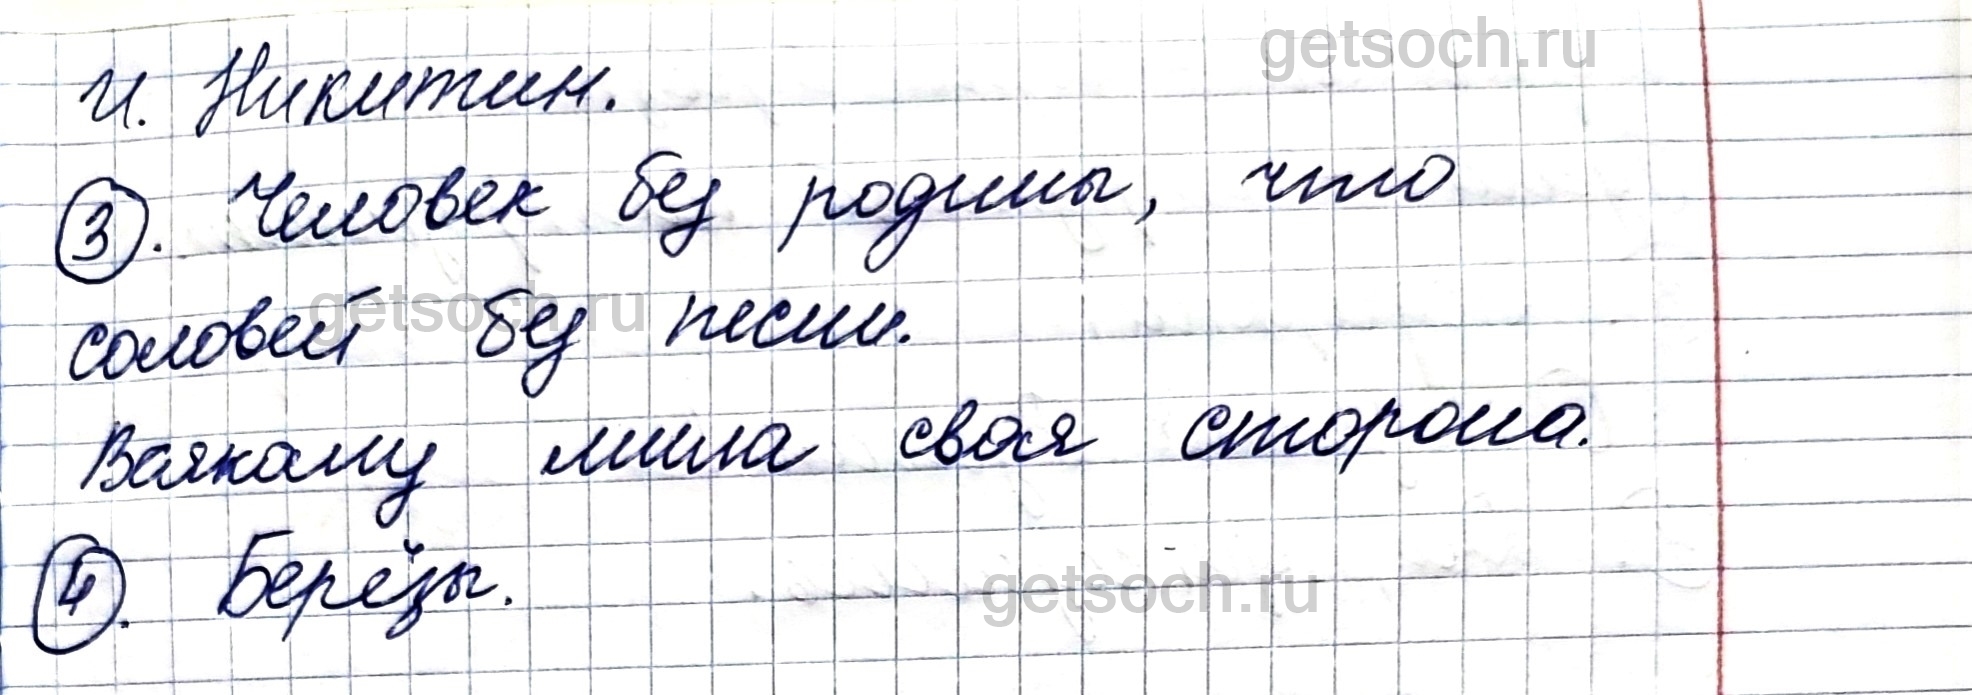 getsoch.ru
И. Никитин.
3. Человек без родины, что
соловей без песни.
getsoch.ru
Всякому мила своя сторона.
4. Берёзы.
getsoch.ru